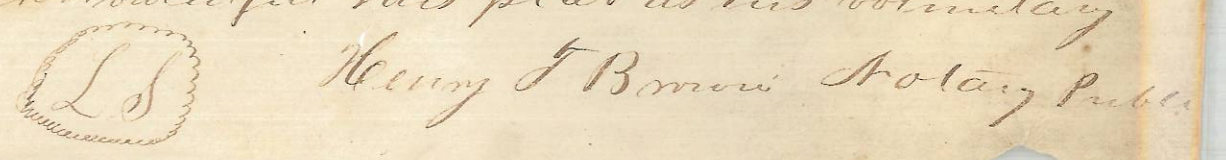 this plat as his voluntary
L S Henry T Brown Notary Public